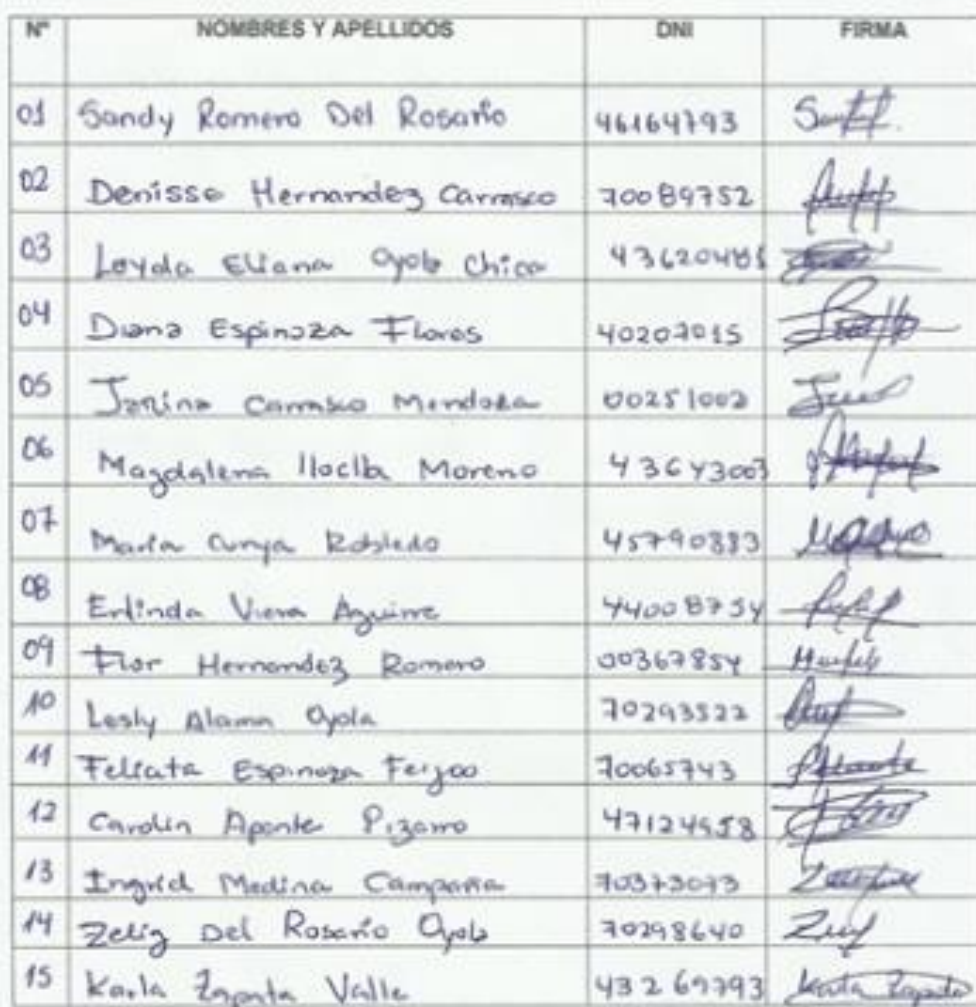 N° NOMBRES Y APELLIDOS DNI FIRMA
01 Sandy Romero Del Rosario 46164793
02 Denisse Hernandez Carrasco 70089752
03 Leyda Eliana Oyola Chica 43620485
04 Diana Espinoza Flores 40207015
05 Janina Carrasco Mendoza 00251002
06 Magdalena Lloclla Moreno 43643003
07 Maria Cunya Robledo 45790883
08 Erlinda Viera Aguirre 44008754
09 Flor Hernandez Romero 00367854
10 Lesly Alama Oyola 70293522
11 Feliata Espinoza Feijoo 70065743
12 Carolin Aponte Pizarro 47124958
13 Ingrid Medina Campaña 70373073
14 Zeliz Del Rosario Oyola 70298640
15 Karla Zapata Valle 43269793 Karla Zapata